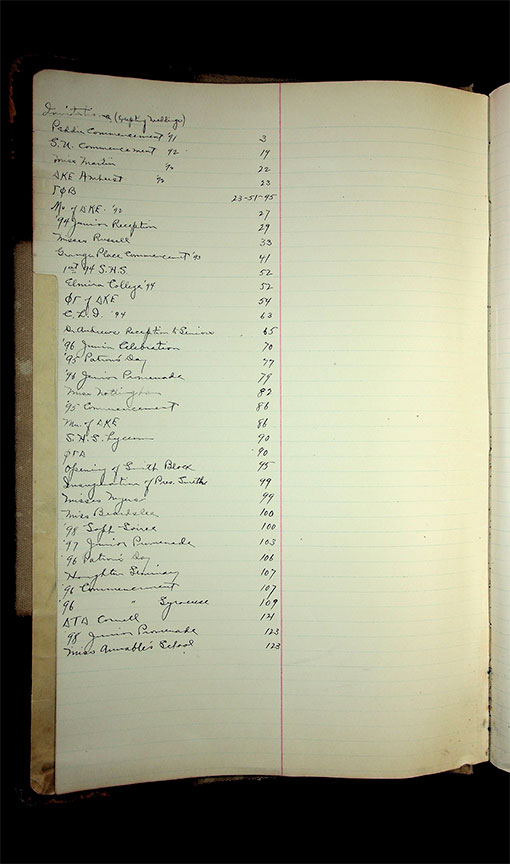 Invitations (Except Weddings)
Peddie Commencement '91 3
S.U. Commencement '92 14
Miss Martin '92 22
ΔKE Amherst '92 23
ΓΦΒ 23-51-95
Mu of ΔKE '92 27
'94 Junior Reception 29
Misses Russell 33
Granger Place Commencement '93 41
1st '94 S.H.S. 52
Elmira College '94 52
ΦΓ of ΔKE 54
C.L.I. '94 63
Dr Andrews Reception to Seniors 65
'96 Junior Celebration 70
'95 Patron's Day 77
'96 Junior Promenade 79
Miss Nottingham 82
'95 Commencement 86
Mu of ΔKE 86
S.H.S. Lyceum 90
ΦΓΔ 90
Opening of Smith Block 95
Inauguration of Pres. Smith 99
Misses Myers 99
Miss Beardslee 100
'98 Soph Soiree 100
'97 Junior Promenade 103
'96 Patron's Day 106
Houghton Seminary 107
'96 Commencement 107
'96 " Syracuse 109
ΔΤΔ Cornell 121
'98 Junior Promenade 123
Miss Annable's School 123